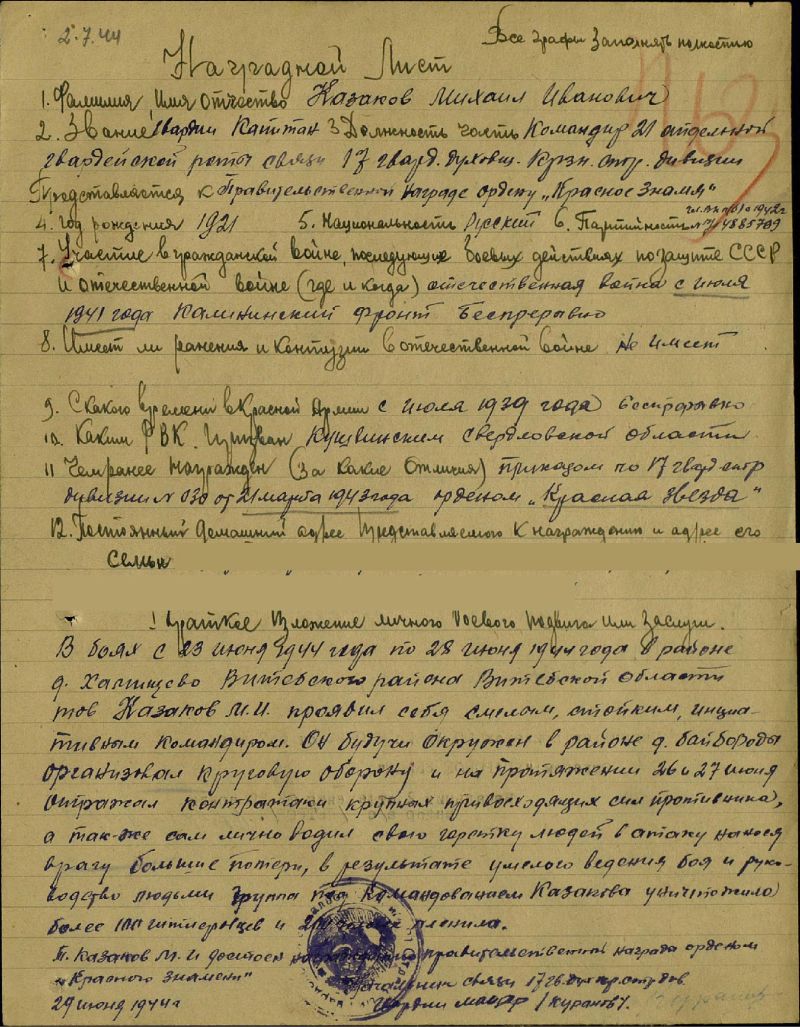 2.7.44
Все графы заполнять полностью
Наградной Лист
1. Фамилия, имя отчество Казаков Михаил Иванович
2. Звание Гвардии Капитан 3 Должность часть Командир 21 отдельной
гвардейской роты связи 17 гвард. духовщ. Крзн. стр. дивизии
Представляется к Правительственной награде ордену „Красное Знамя"
4. год рождения 1921 5. Национальность Русский 6. Партийность 1942г №4885799
7. Участие в гражданской войне, последующих боевых действиях по защите СССР
и отечественной войне (где и когда) отечественная война с июля
1941 года Калининский фронт беспрерывно
8. Имеет ли ранения и контузии в отечественной войне не имеет
9. С какого времени в Красной Армии с июля 1939 года беспрерывно
10. Каким РВК призван Кушвинским Свердловской области
11 Чем ранее награжден (за какие отличия) приказом по 17 гвд стр
дивизии №030 от 21 марта 1943 года орденом „Красная звезда"
12. Постоянный домашний адрес представляемого к награждению и адрес его
семьи
I Краткое изложение личного боевого подвига или заслуги.
В боях с 23 июня 1944 года по 28 июня 1944 года в районе
д. Витебского района Витебской области
тов Казаков М.И. проявил себя смелым, стойким, инициа-
тивным командиром. Он будучи окружен в районе д. Байбороды
организовал круговую оборону и на протяжении 26 и 27 июня
отражал контратаки крупных привосходящих сил противника,
а так-же сам лично водил свою горстку людей в атаку нанося
врагу большие потери, в результате умелого ведения боя и руко-
водство людьми группа под командованием Казакова уничтожила
более 100 гитлеровцев и пленила.
Т. Казаков М.И достоен правительственной награда орденом
„Красного Знамени"
Начальник связи 17 гв. дух кр. стр. див.
29 июня 1944г гвардии майор /Куранов/.